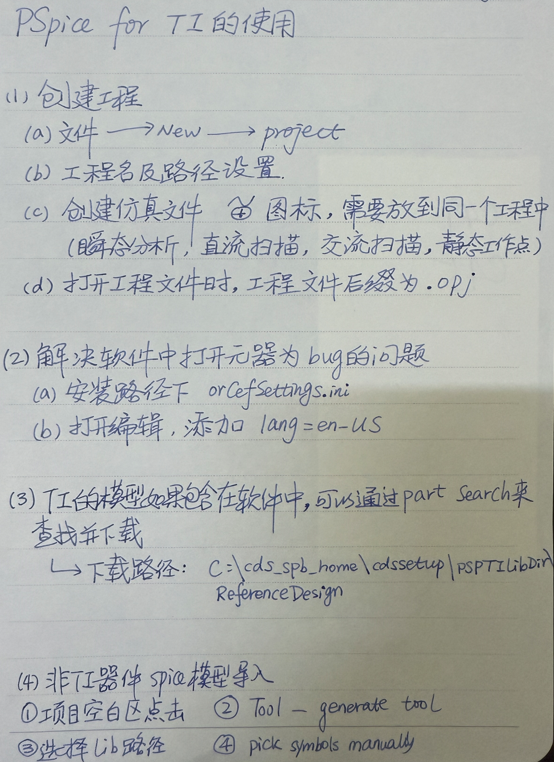 PSpice for TI 的使用
(1) 创建工程
(a) 文件 → New → project
(b) 工程名及路径设置.
(c) 创建仿真文件 图标, 需要放到同一个工程中
(瞬态分析, 直流扫描, 交流扫描, 静态工作点)
(d) 打开工程文件时, 工程文件后缀为 .opj
(2) 解决软件中打开元器为bug的问题
(a) 安装路径下 orCefSettings.ini
(b) 打开编辑, 添加 lang=en-US
(3) TI的模型如果包含在软件中, 可以通过part Search来
查找并下载
↳ 下载路径: C:\cds_spb_home\cdssetup\PSPTILibDir\
ReferenceDesign
(4) 非TI器件 spice模型导入
①项目空白区点击 ② Tool - generate tool
③选择Lib路径 ④ pick symbols manually